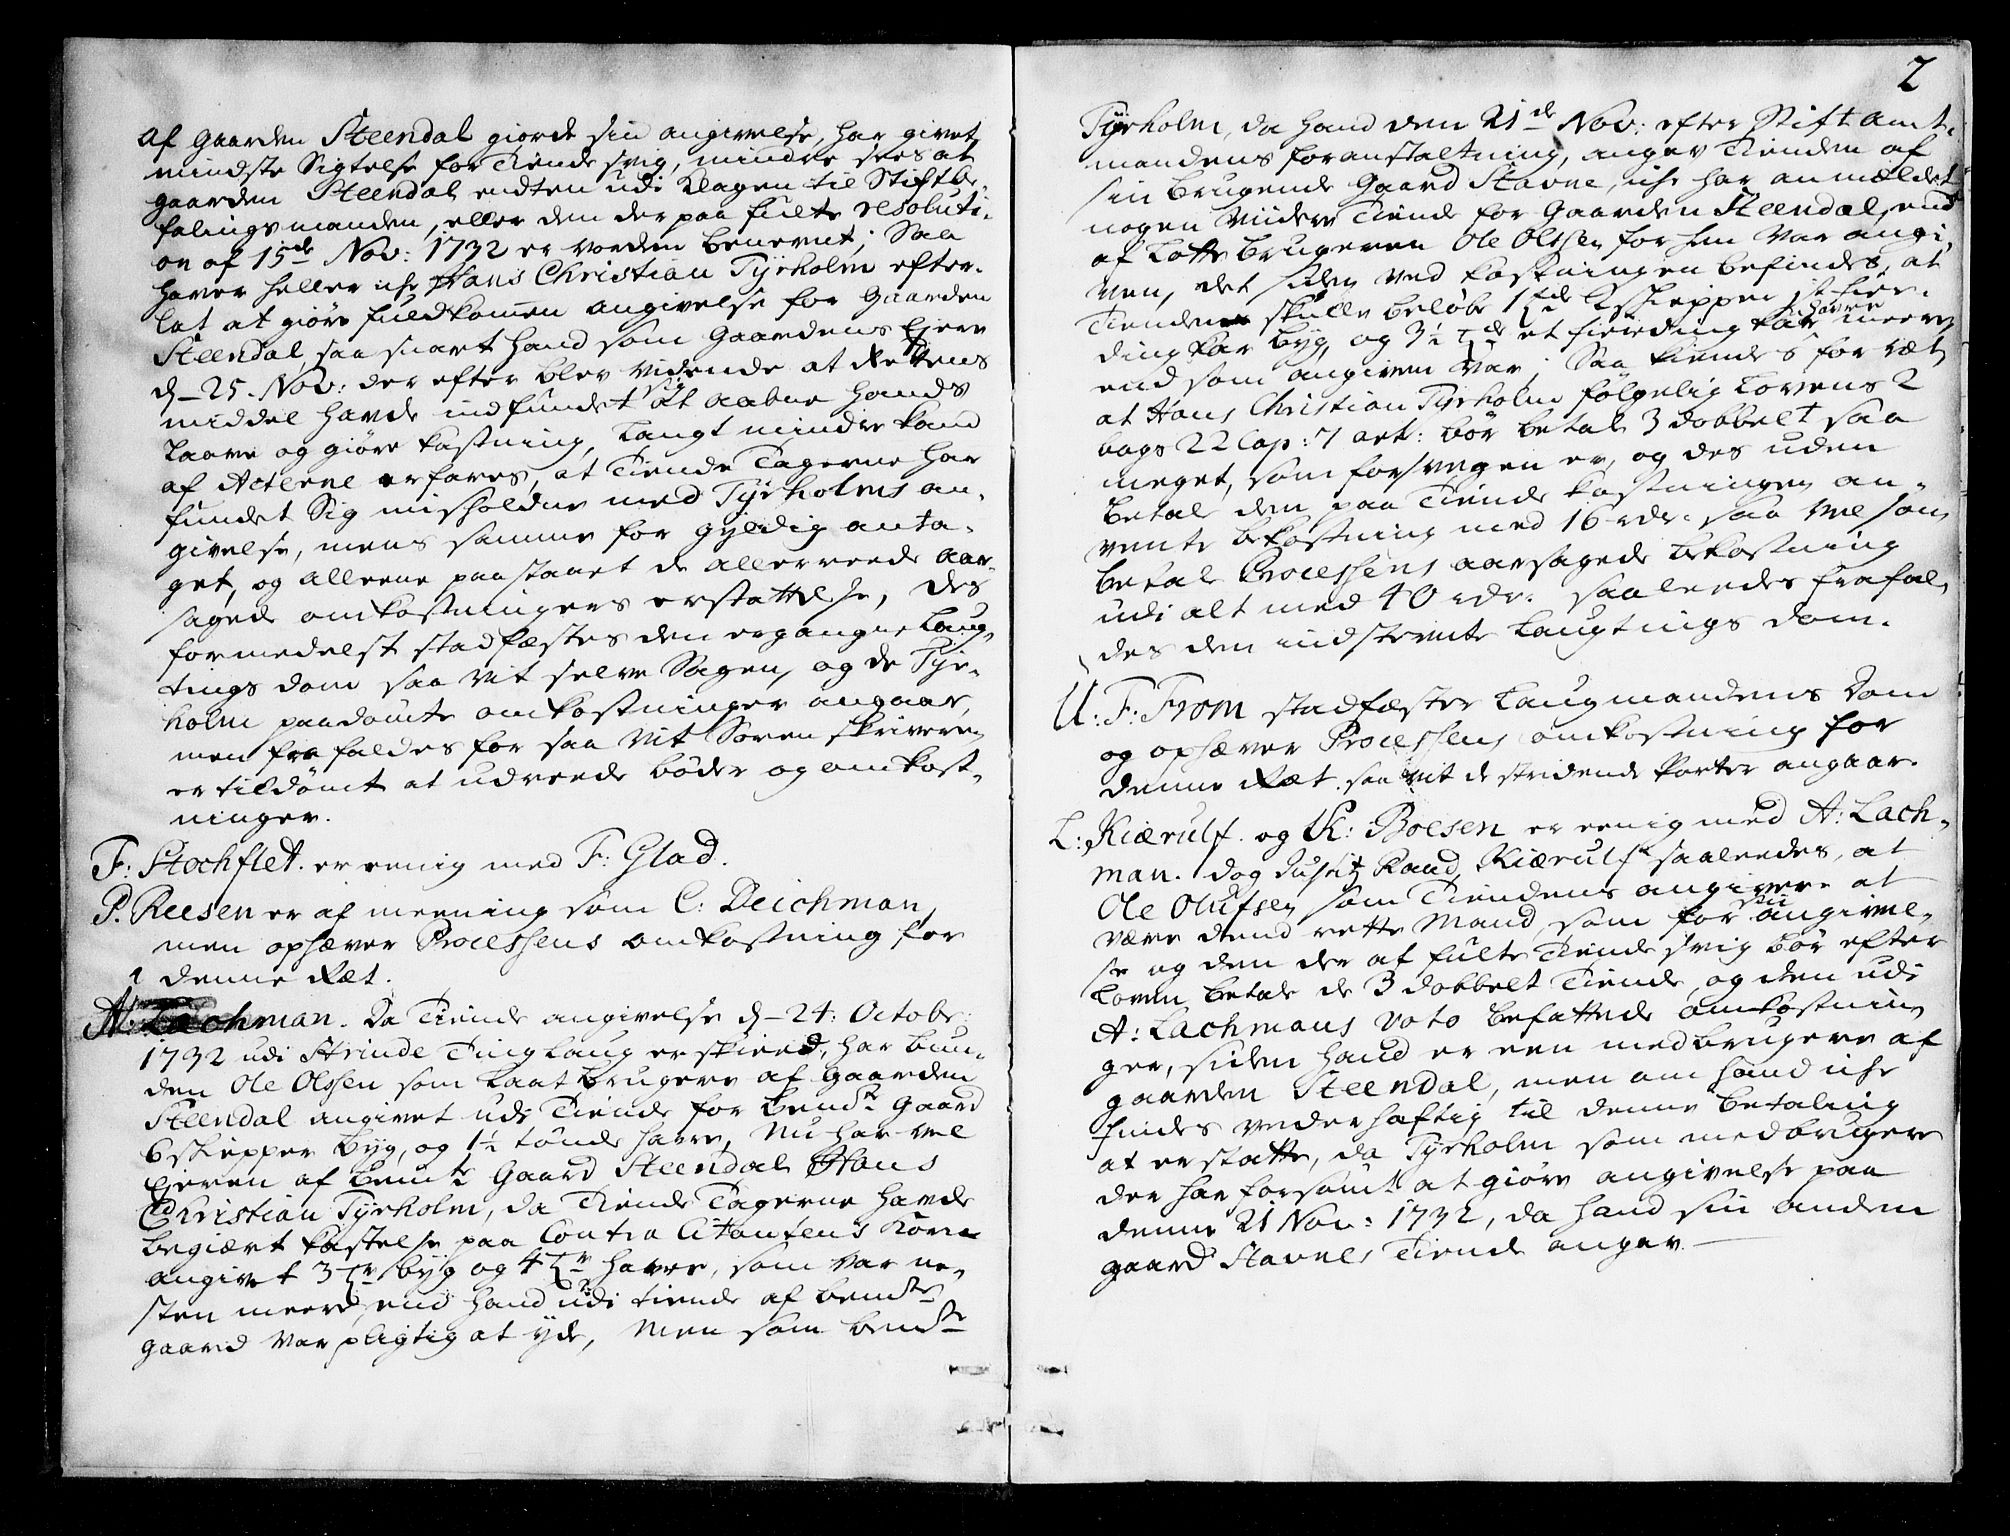 af gaarden Steendal giorde sin angivelse, har givet
mindste Sigtelse for Tiende svig, mindre sees at
gaarden Steendal endten udi Klagen til Stiftbe-
falingsmanden, eller den der paa fulte resoluti-
on af 15de Nov: 1732 er vorden benevnt; Saa
haver heller iche Hans Christian Tyrholm efter-
lat at giøre fuldkomen angivelse for Gaarden
Steendal, saa snart hand som Gaardens Ejere
d- 25. Nov: der efter blev vidende at Rettens
middel havde indfundet sig at aabne hands
Laave og giøre kastning, langt mindre kand
af Acterne erfares, at Tiende Tagerne har
fundet Sig misholdne med Tyrholms an-
givelse, mens samme for gyldig anta-
get, og alleene paastaaet de allerreede aar-
sagede omkostningers erstattelse, des
formedelst stadfæstes den ergangne Laug-
tings dom saa vit selve Sagen, og de Tyr-
holm paadømte omkostninger angaar,
men fra faldes for saa vit Sorenskriveren
er tildømt at udreede bøder og omkost-
ninger.
F: Stochflet. er eenig med F: Glad.
P. Reesen er af meening som C: Deichman,
men ophæver Processens omkostning for
denne Ræt.
A: Lachman. Da Tiende angivelse d- 24: Octobr:
1732 udi Strinde Tinglaug er skieed, har bun-
den Ole Olssen som Laat brugere af gaarden
Steendal angivet udi Tiende for bemte Gaard
6 skiepper byg, og 1½ tønde havre, Nu har vel
Ejeren af bemte Gaard Steendal Hans
Christian Tyrholm, da Tiende Tagerne havde
begiært kastelse paa Contra Citantens Korn
angivet 3 tr byg og 4 tr havre, som var ne-
sten meere, end hand udi tiende af bemte
gaard var pligtig at yde, Men som bemte
2
Tyrholm, da hand den 21de Nov: efter Stiftamt-
mandens foranstaltning, angav Tienden af
sin brugende Gaard Stavne, iche har anmeldet
nogen videre Tiende for Gaarden Steendal, end
af Lotte brugeren Ole Olssen for ham var angi-
ven, det siden ved kastningen befindes, at
Tienden skulle beløbe 1 tde skiepper fier-
ding kar byg, og 3½ tde et fierding kar havre meere
end som angiven var; Saa kiendes for ræt,
at Hans Christian Tyrholm følgelig Lovens 2
bogs 22 Cap: 7 art: bør betale 3 dobbelt saa
meget, som forsvegen er, og des uden
betale den paa Tiende kastningen an-
vente bekostning med 16 rdr. saa vel som
betale Processens aarsagede bekostning
udi alt med 40 rdr. saaleedes frafal-
des den indstevnte Laugtings dom.
U: F: From stadfæster Laugmandens Dom
og ophæver Processens omkostning for
denne Ræt. saa vit de stridende Parter angaar.
L: Kiærulf. og K: Boesen er eenig med A: Lach-
man. dog Justitz Raad Kiærulf saaledes, at
Ole Olufsen som Tiendens angivere at
være dend rette Mand som for sin angivel-
se og den der af fulte Tiende svig bør efter
Loven betale de 3 dobbelt Tiende, og den udi
A: Lachmans voto befattede omkostnin-
ger, siden hand er een medbrugere af
gaarden Steendal, men om hand iche
findes vederhæftig til denne betaling
at erstatte, da Tyrholm som medbrugere
der har forsømt at giøre angivelse paa
denne 21 Nov: 1732, da hand sin anden
gaard Stavnes Tiende angav.